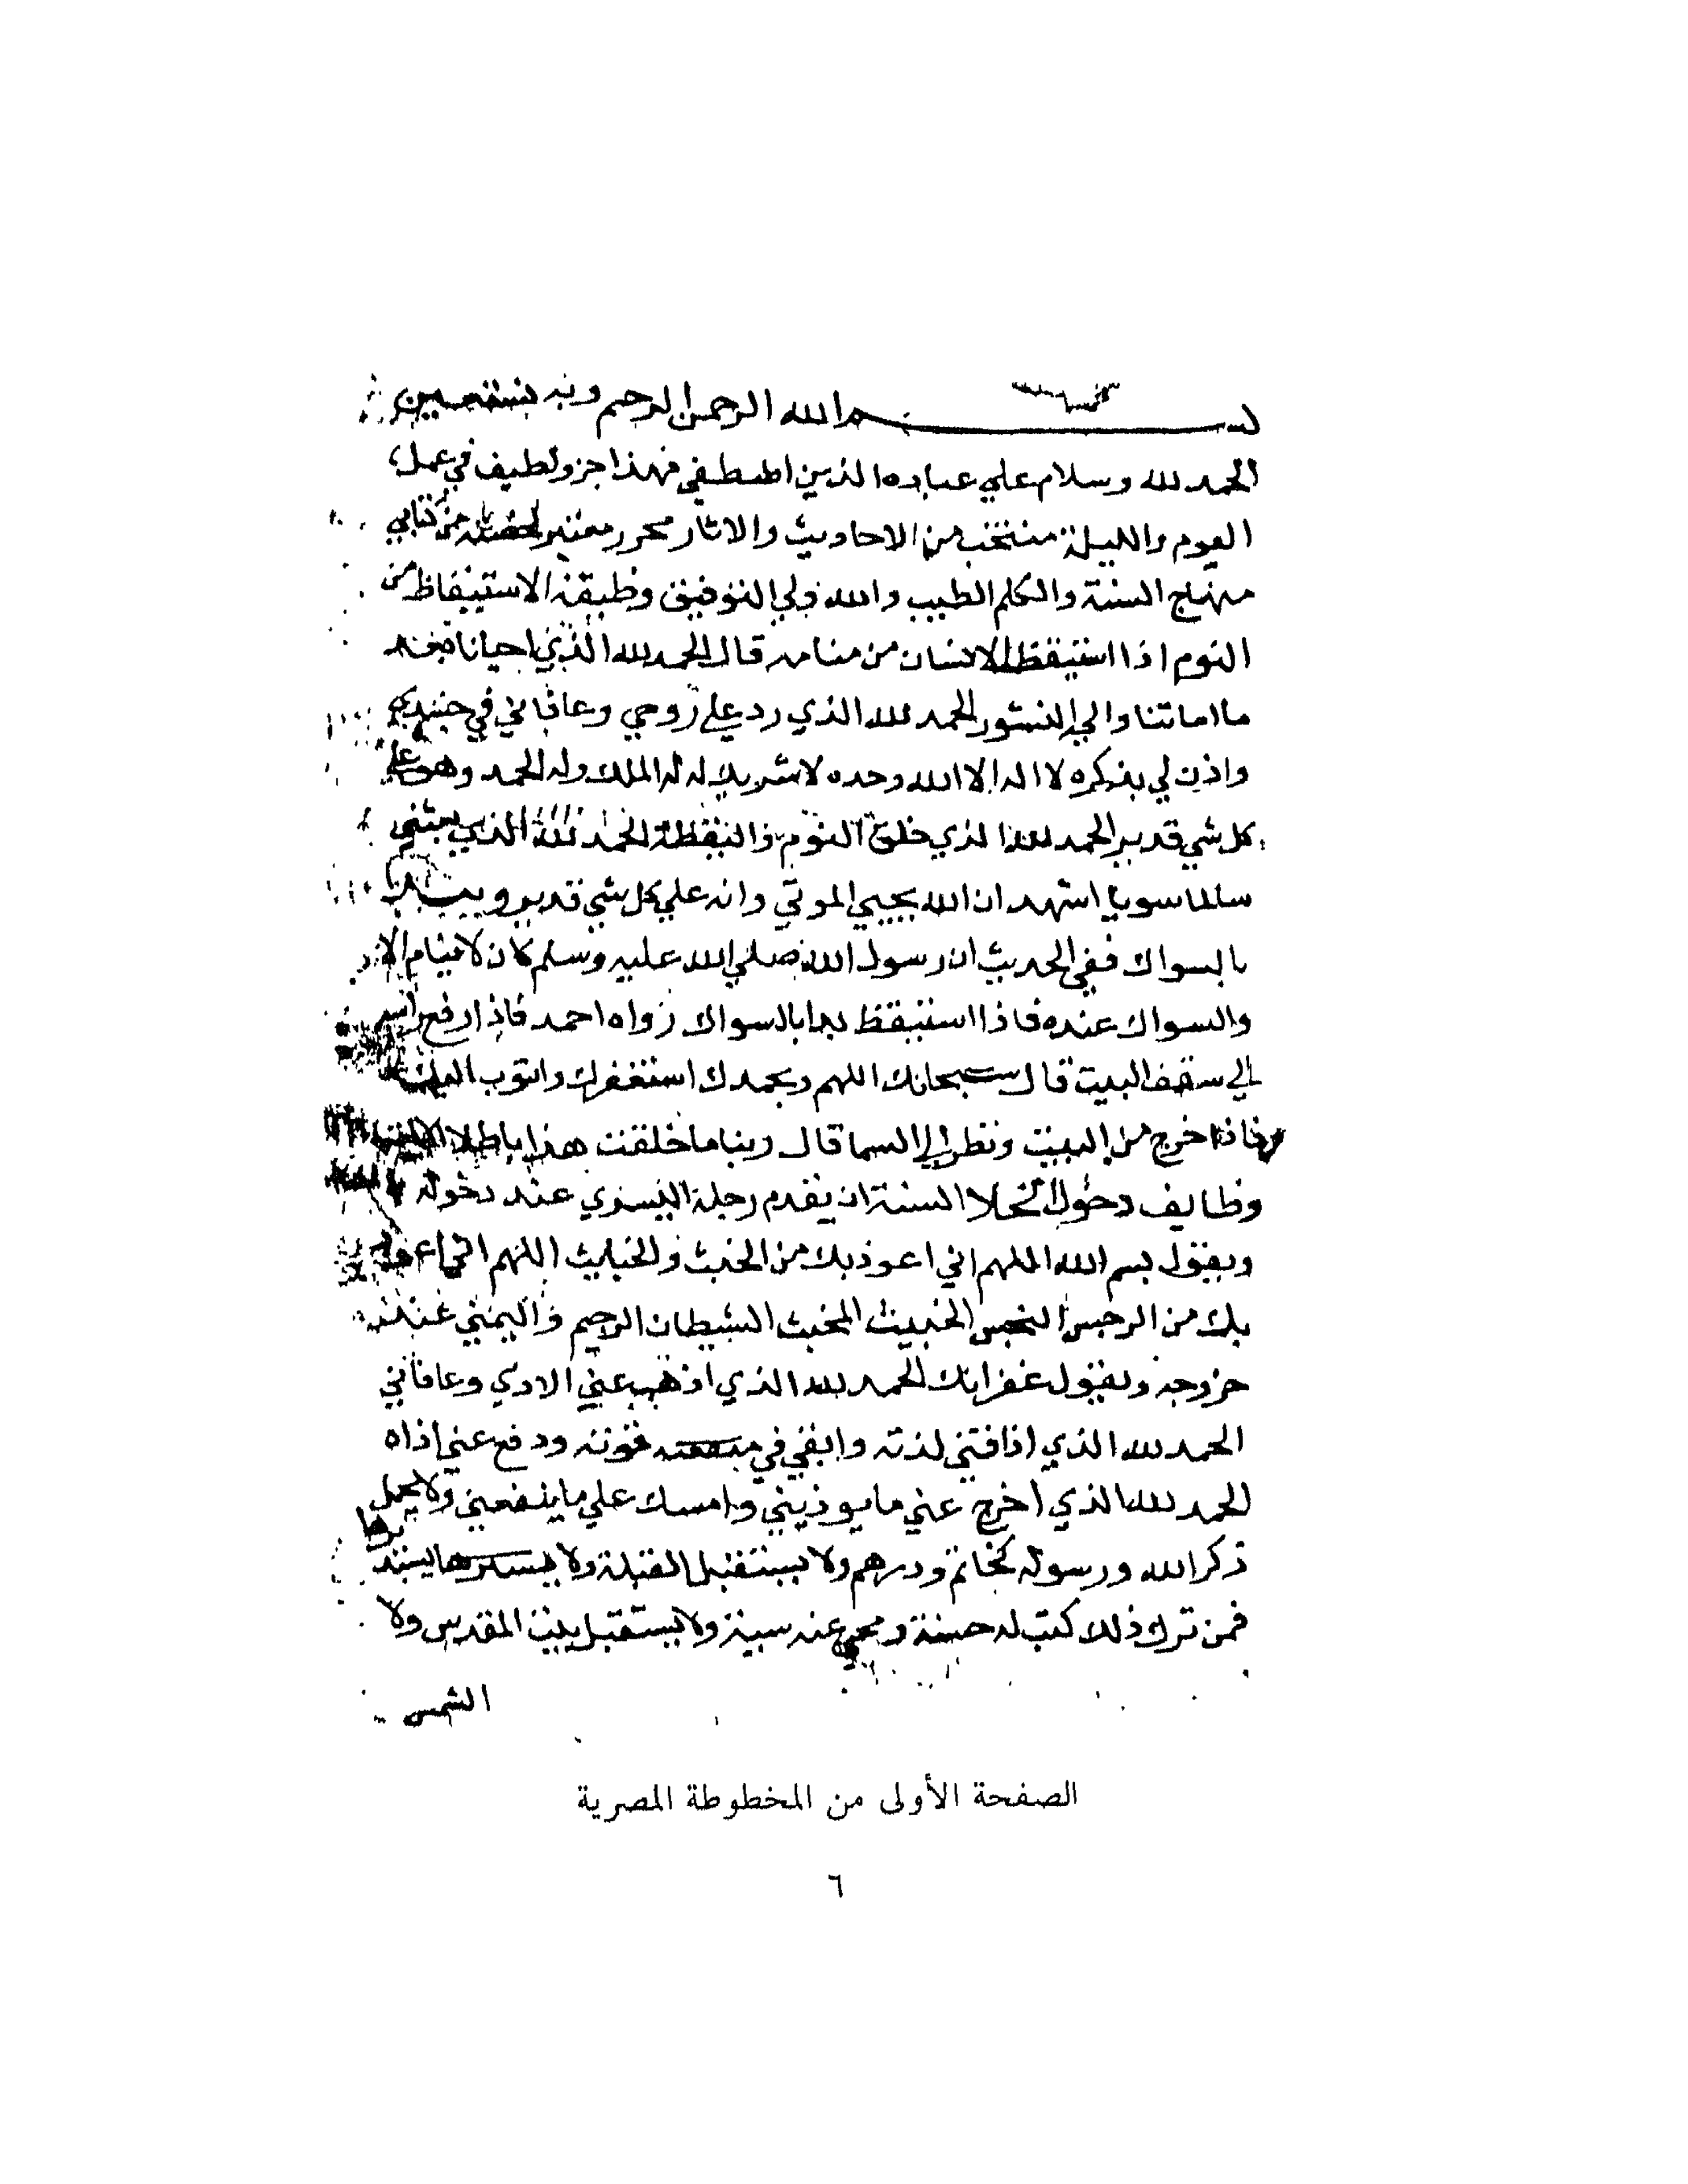 بسم الله الرحمن الرحيم وبه نستعين
الحمد لله وسلام علي عباده الذين اصطفي فهذا جزو لطيف في عمل
اليوم والليلة منتخب من الاحاديث والاثار محرر معتبر لخصته من كتابي
منهاج السنة والكلم الطيب والله ولي التوفيق وظيفة الاستيقاظ من
النوم اذا استيقظ الانسان من منامه قال الحمد لله الذي احيانا بعد
ما اماتنا والي النشور الحمد لله الذي رد علي روحي وعافاني في جسدي
واذن لي بذكره لا اله الا الله وحده لا شريك له له الملك وله الحمد وهو علي
كل شي قدير الحمد لله الذي خلق النوم واليقظة الحمد لله الذي بعثني
سالما سويا اشهد ان الله يحيي الموتي وانه علي كل شي قدير ويبدا
بالسواك ففي الحديث ان رسول الله صلي الله عليه وسلم كان لا ينام الا
والسواك عنده فاذا استيقظ بدا بالسواك رواه احمد فاذا رفع راسه
الي سقف البيت قال سبحانك اللهم وبحمدك استغفرك واتوب اليك
فاذا خرج من البيت ونظر الي السما قال ربنا ما خلقت هذا باطلا
وظايف دخول الخلا السنة ان يقدم رجله اليسري عند دخوله
ويقول بسم الله اللهم اني اعوذ بك من الخبث والخبايث اللهم اني اعوذ
بك من الرجس النجس الخبيث المخبث الشيطان الرجيم واليمني عند
خروجه ويقول غفرانك الحمد لله الذي اذهب عني الاذي وعافاني
الحمد لله الذي اذاقني لذته وابقي في منفعته قوته ودفع عني اذاه
الحمد لله الذي اخرج عني ما يوذيني وامسك علي ما ينفعني ولا يحمل
ذكر الله ورسوله كخاتم ودرهم ولا يستقبل القبلة ولا يستدبرها
فمن ترك ذلك كتب له حسنة ومحي عنه سيية ولا يستقبل بيت المقدس ولا
الشمس
الصفحة الأولى من المخطوطة المصرية
٦